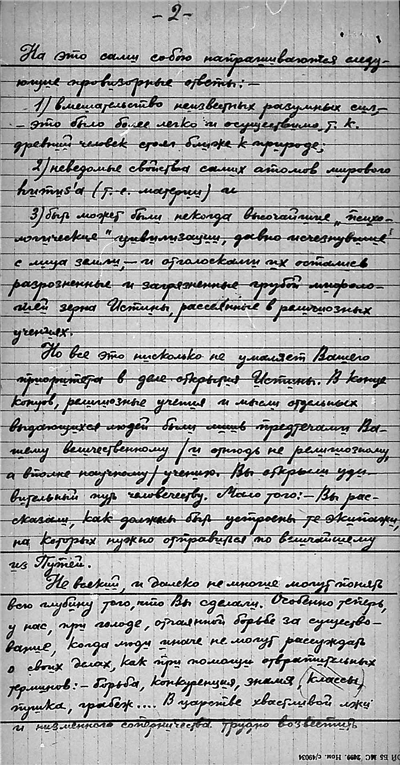 - 2 -
На это сами собою напрашиваются следу-
ющие провизорные ответы: -
1) вмешательство неизвестных разумных сил, -
- это было более легко и осуществимо, т. к.
древний человек стоял ближе к природе;
2) неведомые свойства самих атомов мирового
humus'a (т.-е. материи) и
3) быт может были некогда высочайшие „психо-
логические" цивилизации, давно исчезнувшие
с лица земли, - и отголосками их остались
разрозненные и загрязненные грубой мифоло-
гией зерна Истины, рассеянные в религиозных
учениях.
Но все это нисколько не умаляет Вашего
приоритета в деле открытия Истины. В конце
концов, религиозные учения и мысли отдельных
выдающихся людей были лишь предтечами Ва-
шему величественному / и отнюдь не религиозному,
а вполне научному / учению. Вы открыли уди-
вительный путь человечеству. Мало того: - Вы рас-
сказали, как должны быт устроены те экипажи,
на которых нужно отправиться по величайшему
из Путей.
Не всякий, и далеко не многие могут понять
всю глубину того, что Вы сделали. Особенно теперь,
у нас, при голоде, отчаянной борьбе за существо-
вание, когда люди иначе не могут рассуждать
о своих делах, как при помощи отвратительных
терминов: - борьба, конкуренция, знамя, (классы)
пушка, грабеж.... В царстве хвастливой лжи
и низменного соперничества трудно возвестить